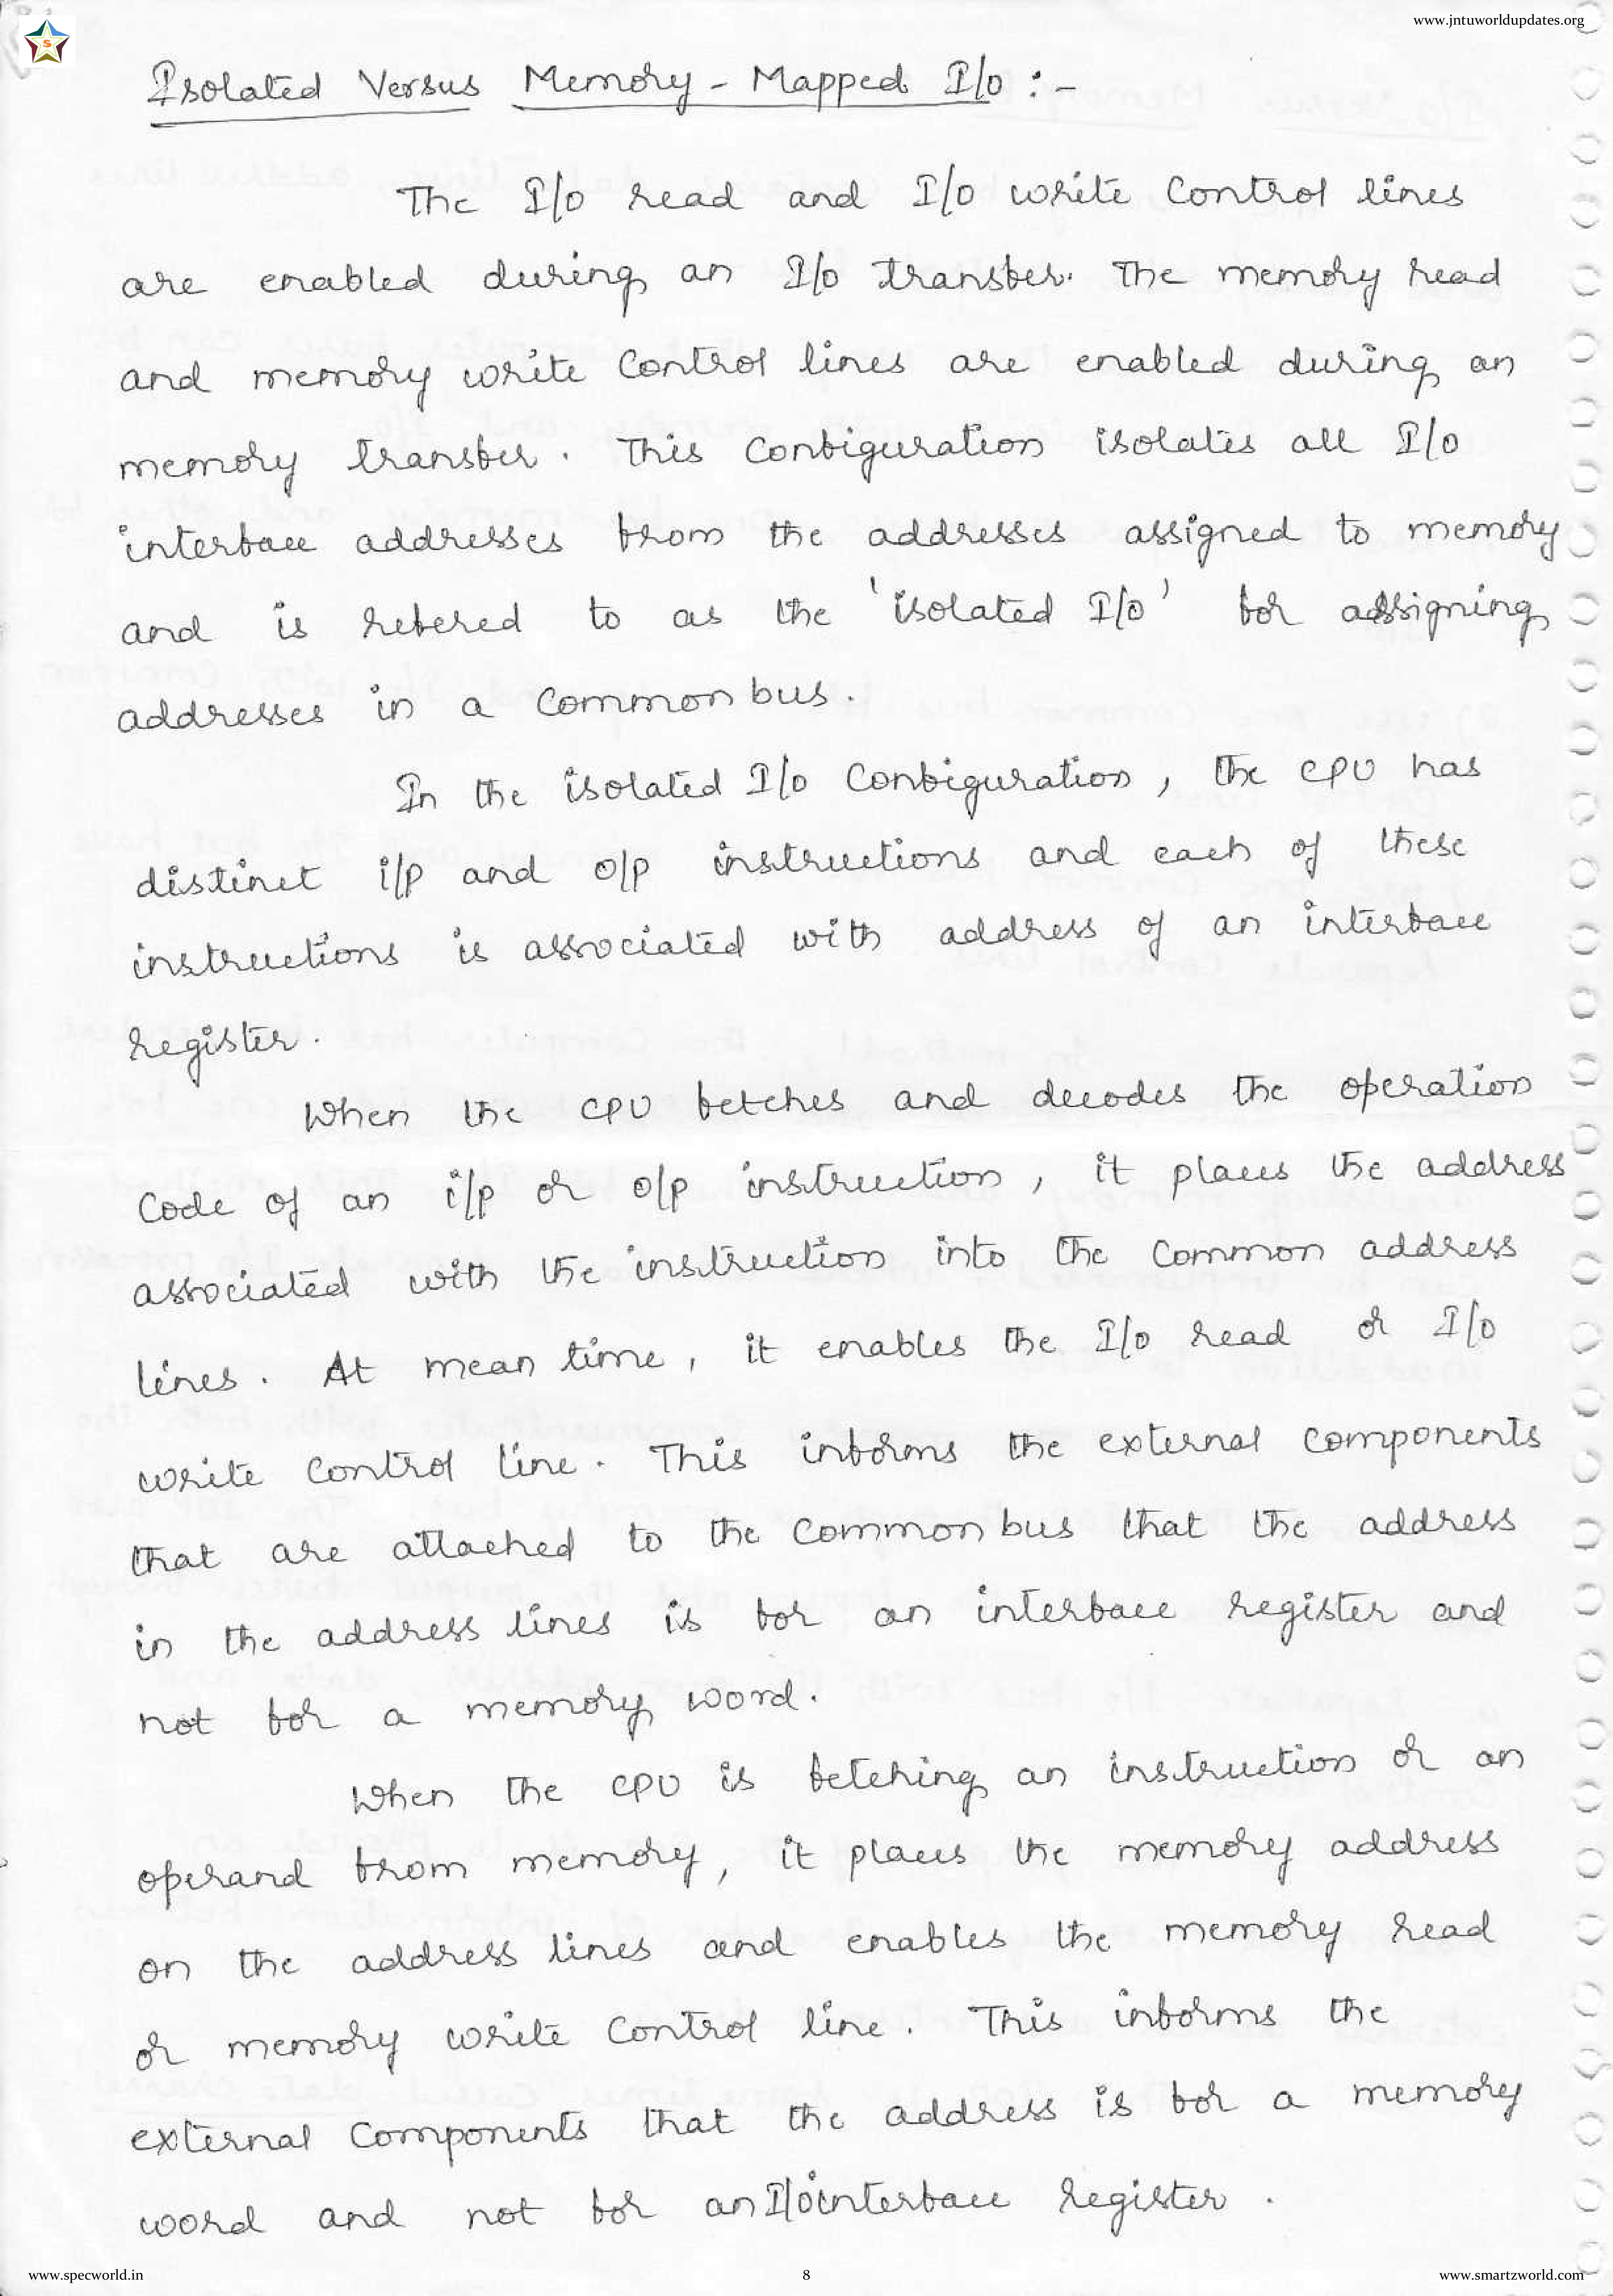 www.jntuworldupdates.org
S
Isolated Versus Memory - Mapped I/o :-
The I/o read and I/o write control lines
are enabled during an I/o transfer. The memory read
and memory write control lines are enabled during an
memory transfer. This configuration isolates all I/o
interface addresses from the addresses assigned to memory
and is refered to as the 'isolated I/o' for assigning
addresses in a common bus.
In the isolated I/o configuration, the CPU has
distinct i/p and o/p instructions and each of these
instructions is associated with address of an interface
register.
When the CPU fetches and decodes the operation
code of an i/p or o/p instruction, it places the address
associated with the instruction into the common address
lines. At mean time, it enables the I/o read or I/o
write control line. This informs the external components
that are attached to the common bus that the address
in the address lines is for an interface register and
not for a memory word.
When the CPU is fetching an instruction or an
operand from memory, it places the memory address
on the address lines and enables the memory read
or memory write control line. This informs the
external components that the address is for a memory
word and not for an I/o interface register.
www.specworld.in 8 www.smartzworld.com